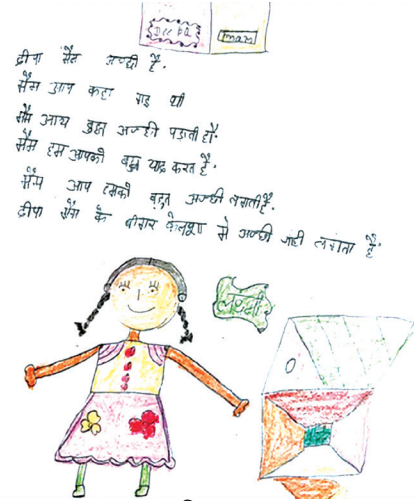 Deepa
mam
दीपा मैम अच्छी है.
मैम आप कहा गइ थी
मैम आप बहुत अच्छी पड़ाती हों.
मैम हम आपको बहुत याद करत है.
मैम आप हमको बहुत अच्छी लगाती है.
दीपा मैम के बीगर से अच्छी नही लगता है.